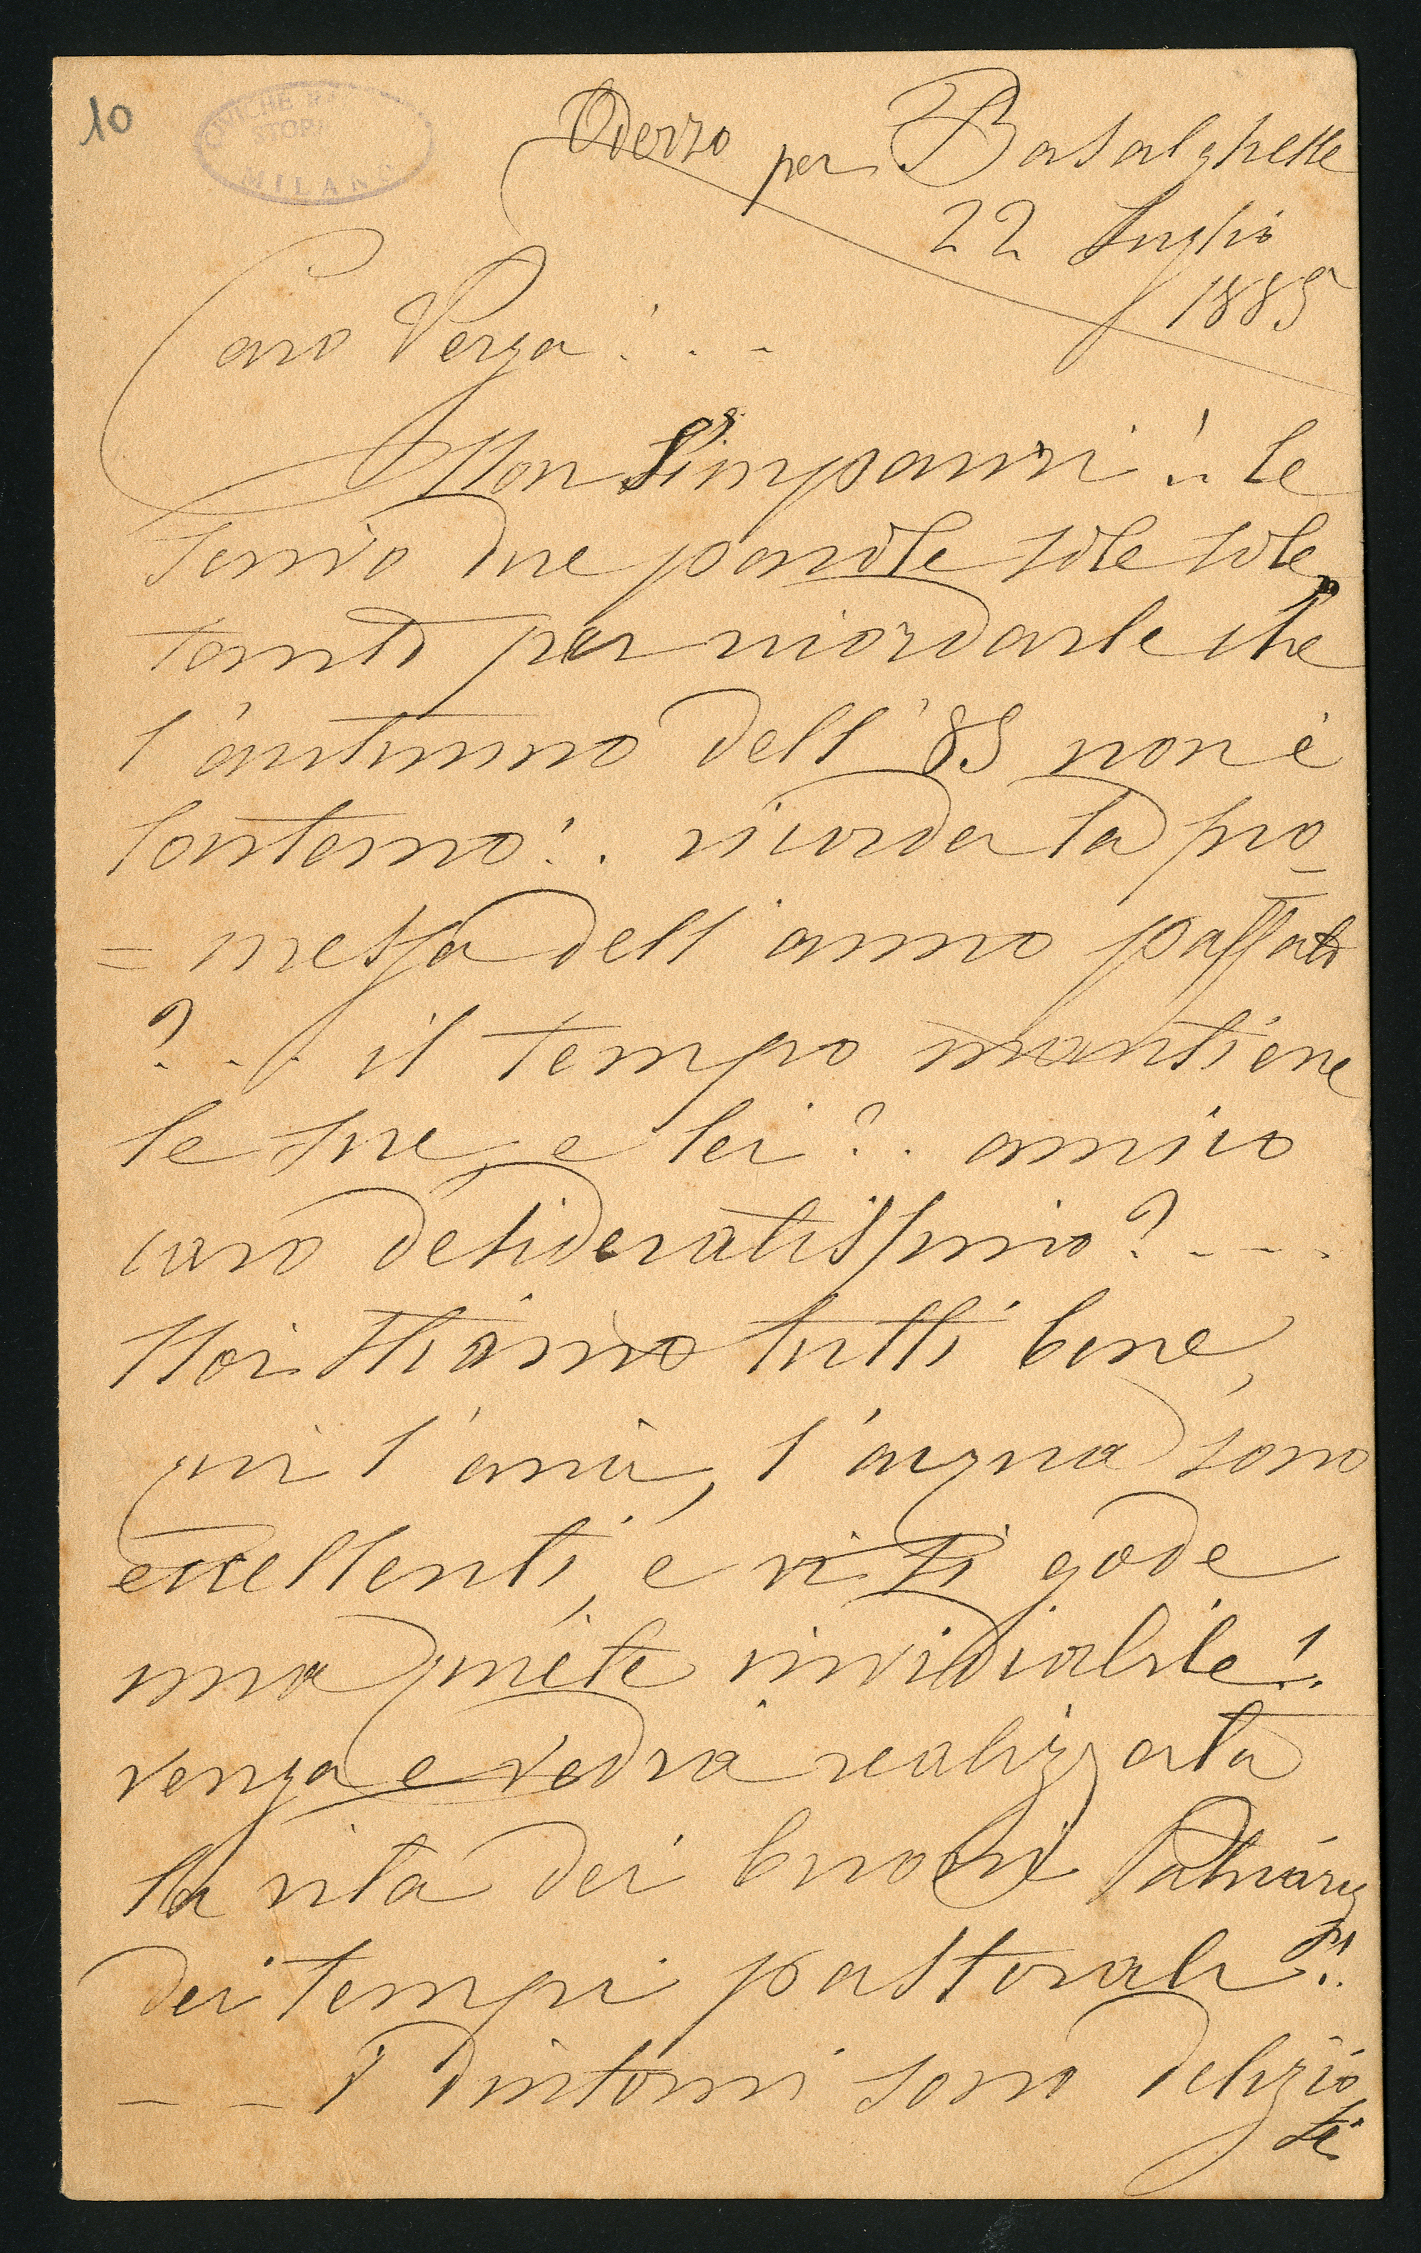 10
CIVICHE RA
STORI
MILANO
Oderzo per Basalghelle
22 Luglio
1885
Caro Verga! . -
Non s'impauri!.. le
scrivo due parole sole sole,
tanto per ricordarle che
l'autunno dell'85 non è
lontano!. ricorda la pro=
=messa dell'anno passato
?.. il tempo mantiene
le sue, e lei?. amico
caro desideratissimo? - - .
Noi stiamo tutti bene,
qui l'aria, l'acqua sono
eccellenti, e vi si gode
una quiete invidiabile!.
venga e vedrà realizzata
la vita dei buoni Patriarchi
dei tempi pastorali!.
- - I dintorni sono delizio
si